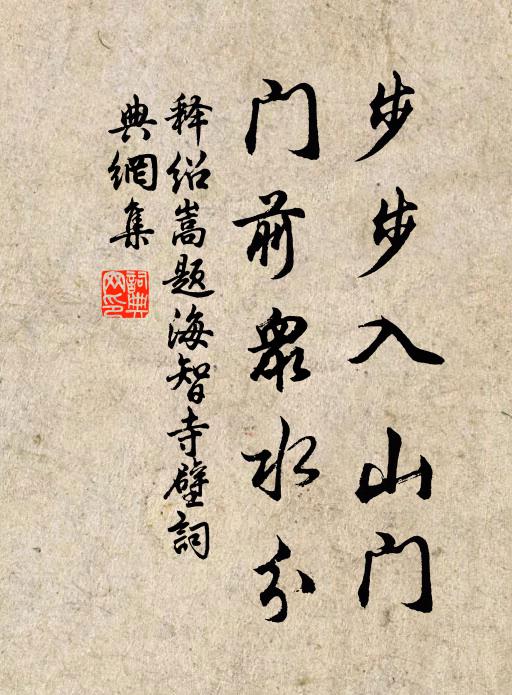 步步入山门
门前众水分
释绍嵩题海智寺壁詞
典網集
詞典网印